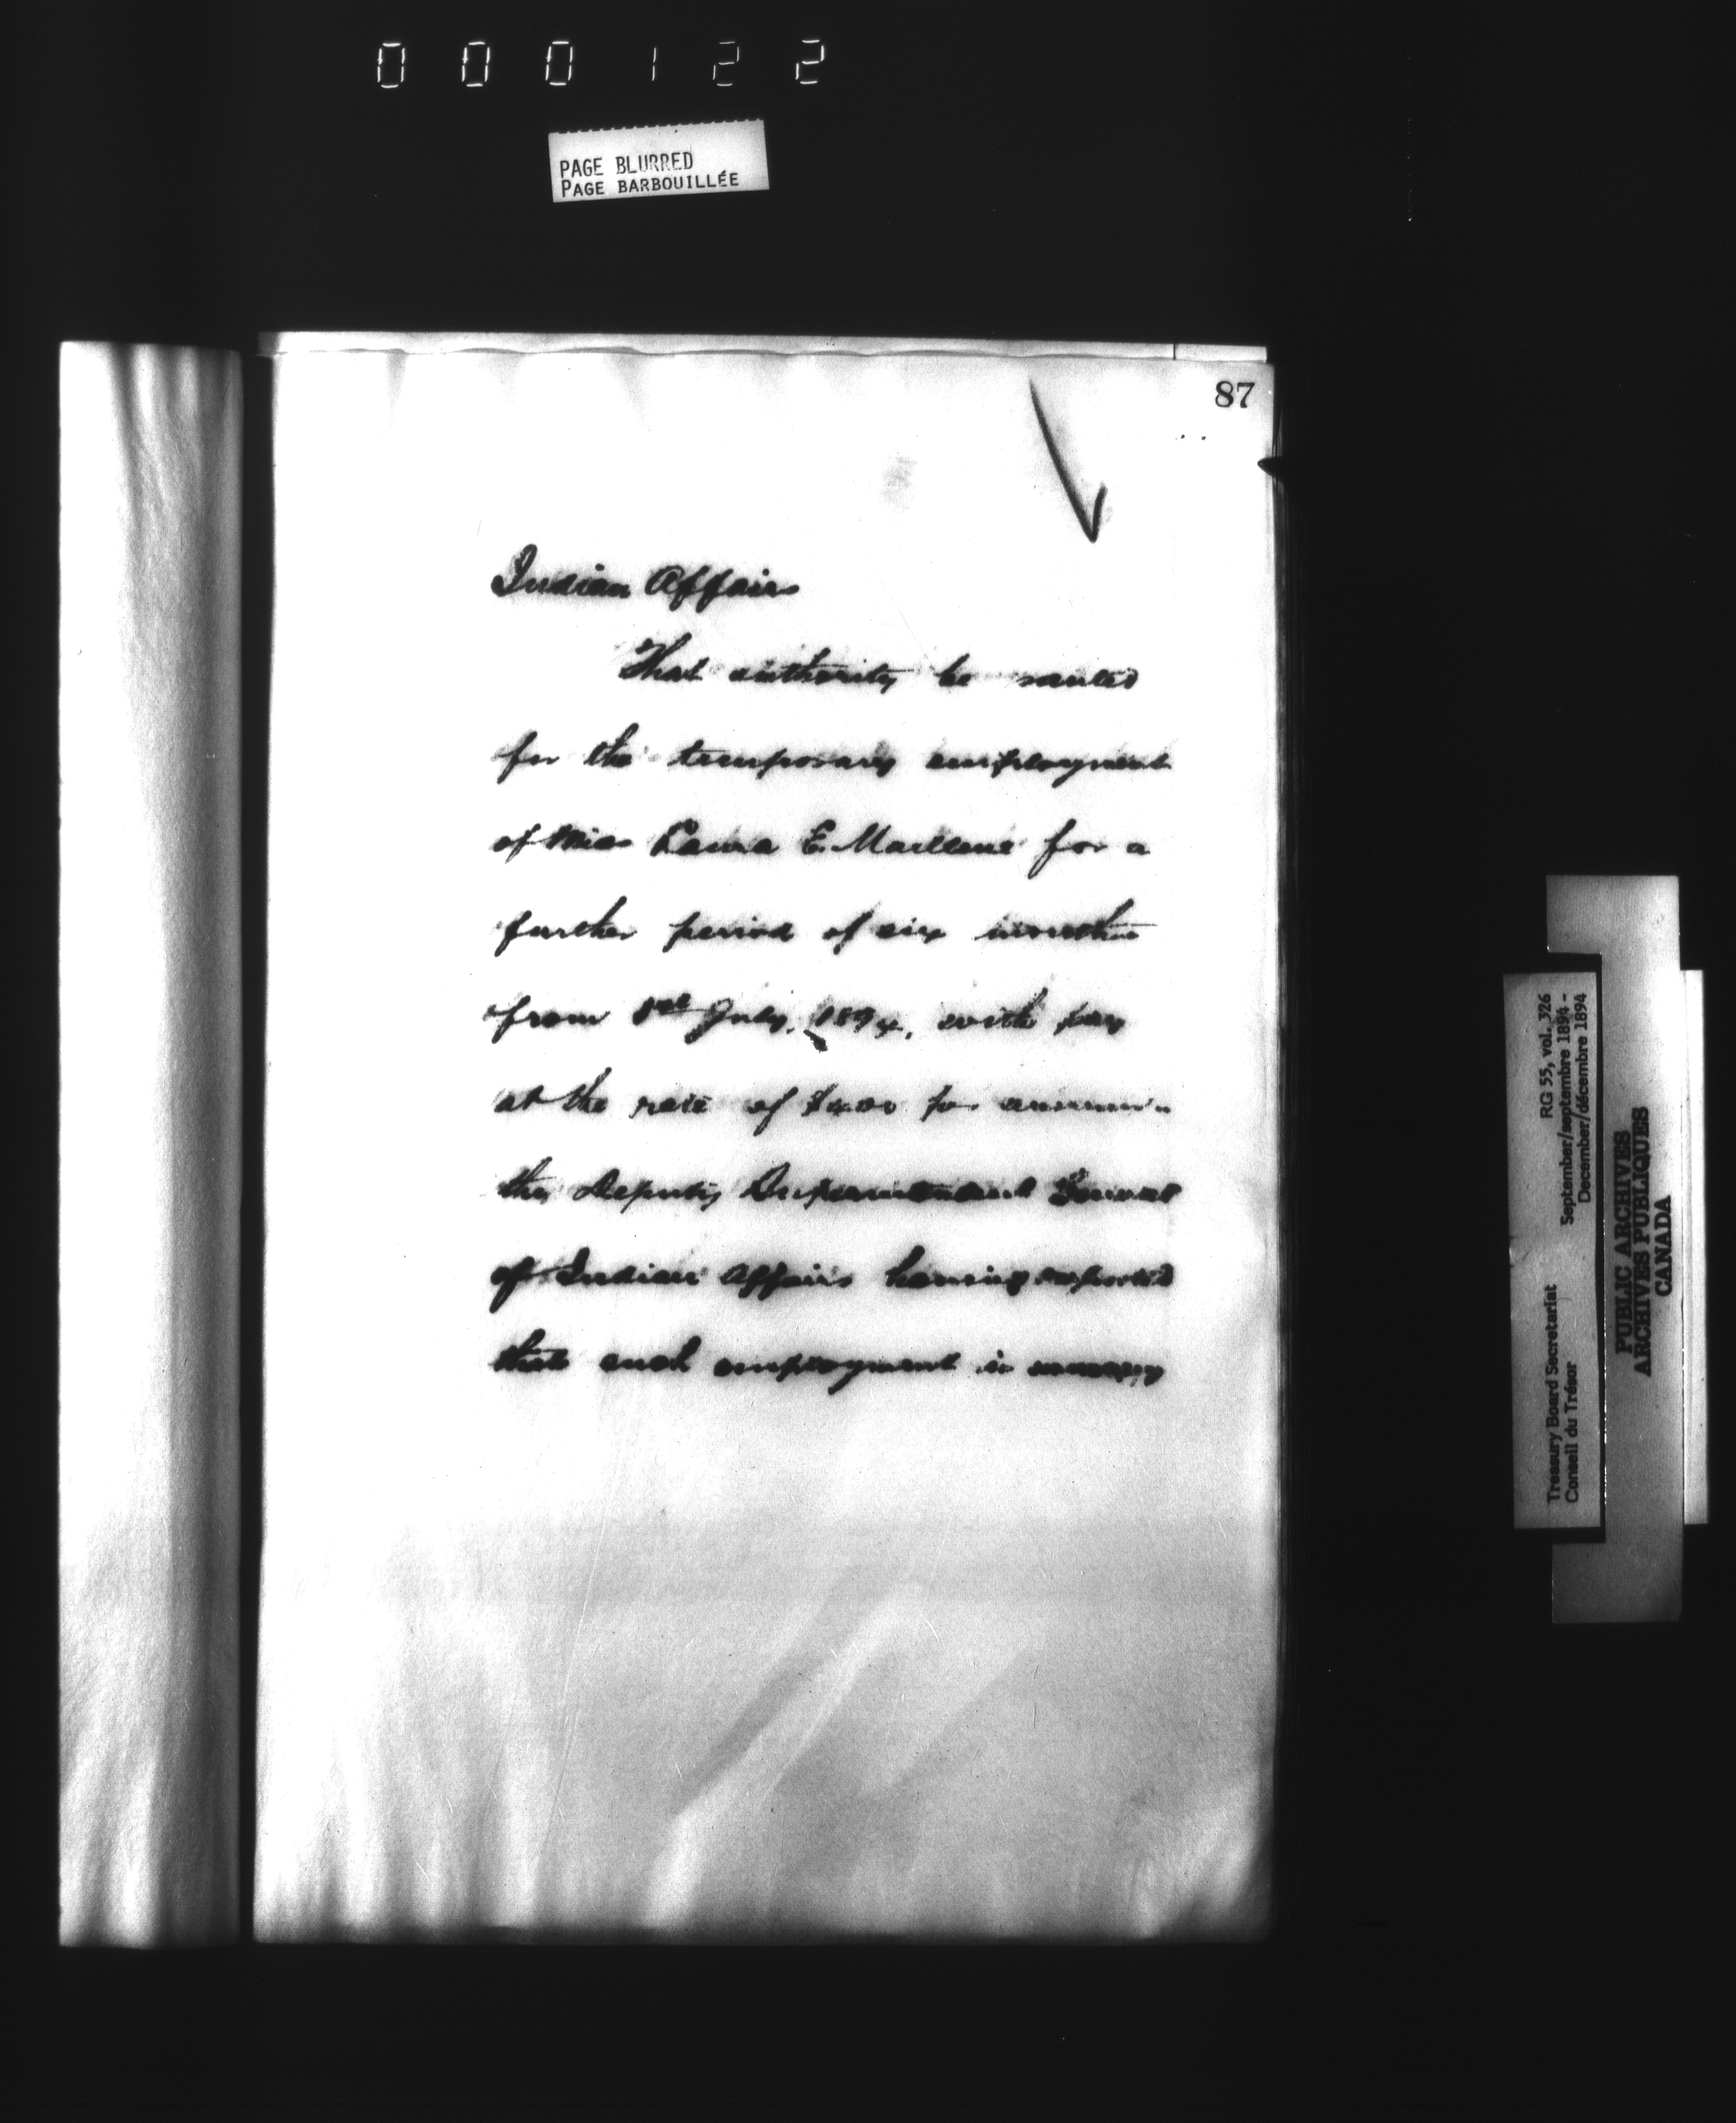 000122
PAGE BLURRED
PAGE BARBOUILLÉE
87
Indian Affairs
That authority be
for the temporary employment
of Miss Laura E. for a
further period of six months
from 1st July, 1894, with pay
at the rate of $400 per annum
the Deputy Superintendent General
of Indian Affairs having reported
that such employment is necessary
Treasury Board Secretariat RG 55, vol. 326
Conseil du Trésor September/septembre 1894 -
December/décembre 1894
PUBLIC ARCHIVES
ARCHIVES PUBLIQUES
CANADA